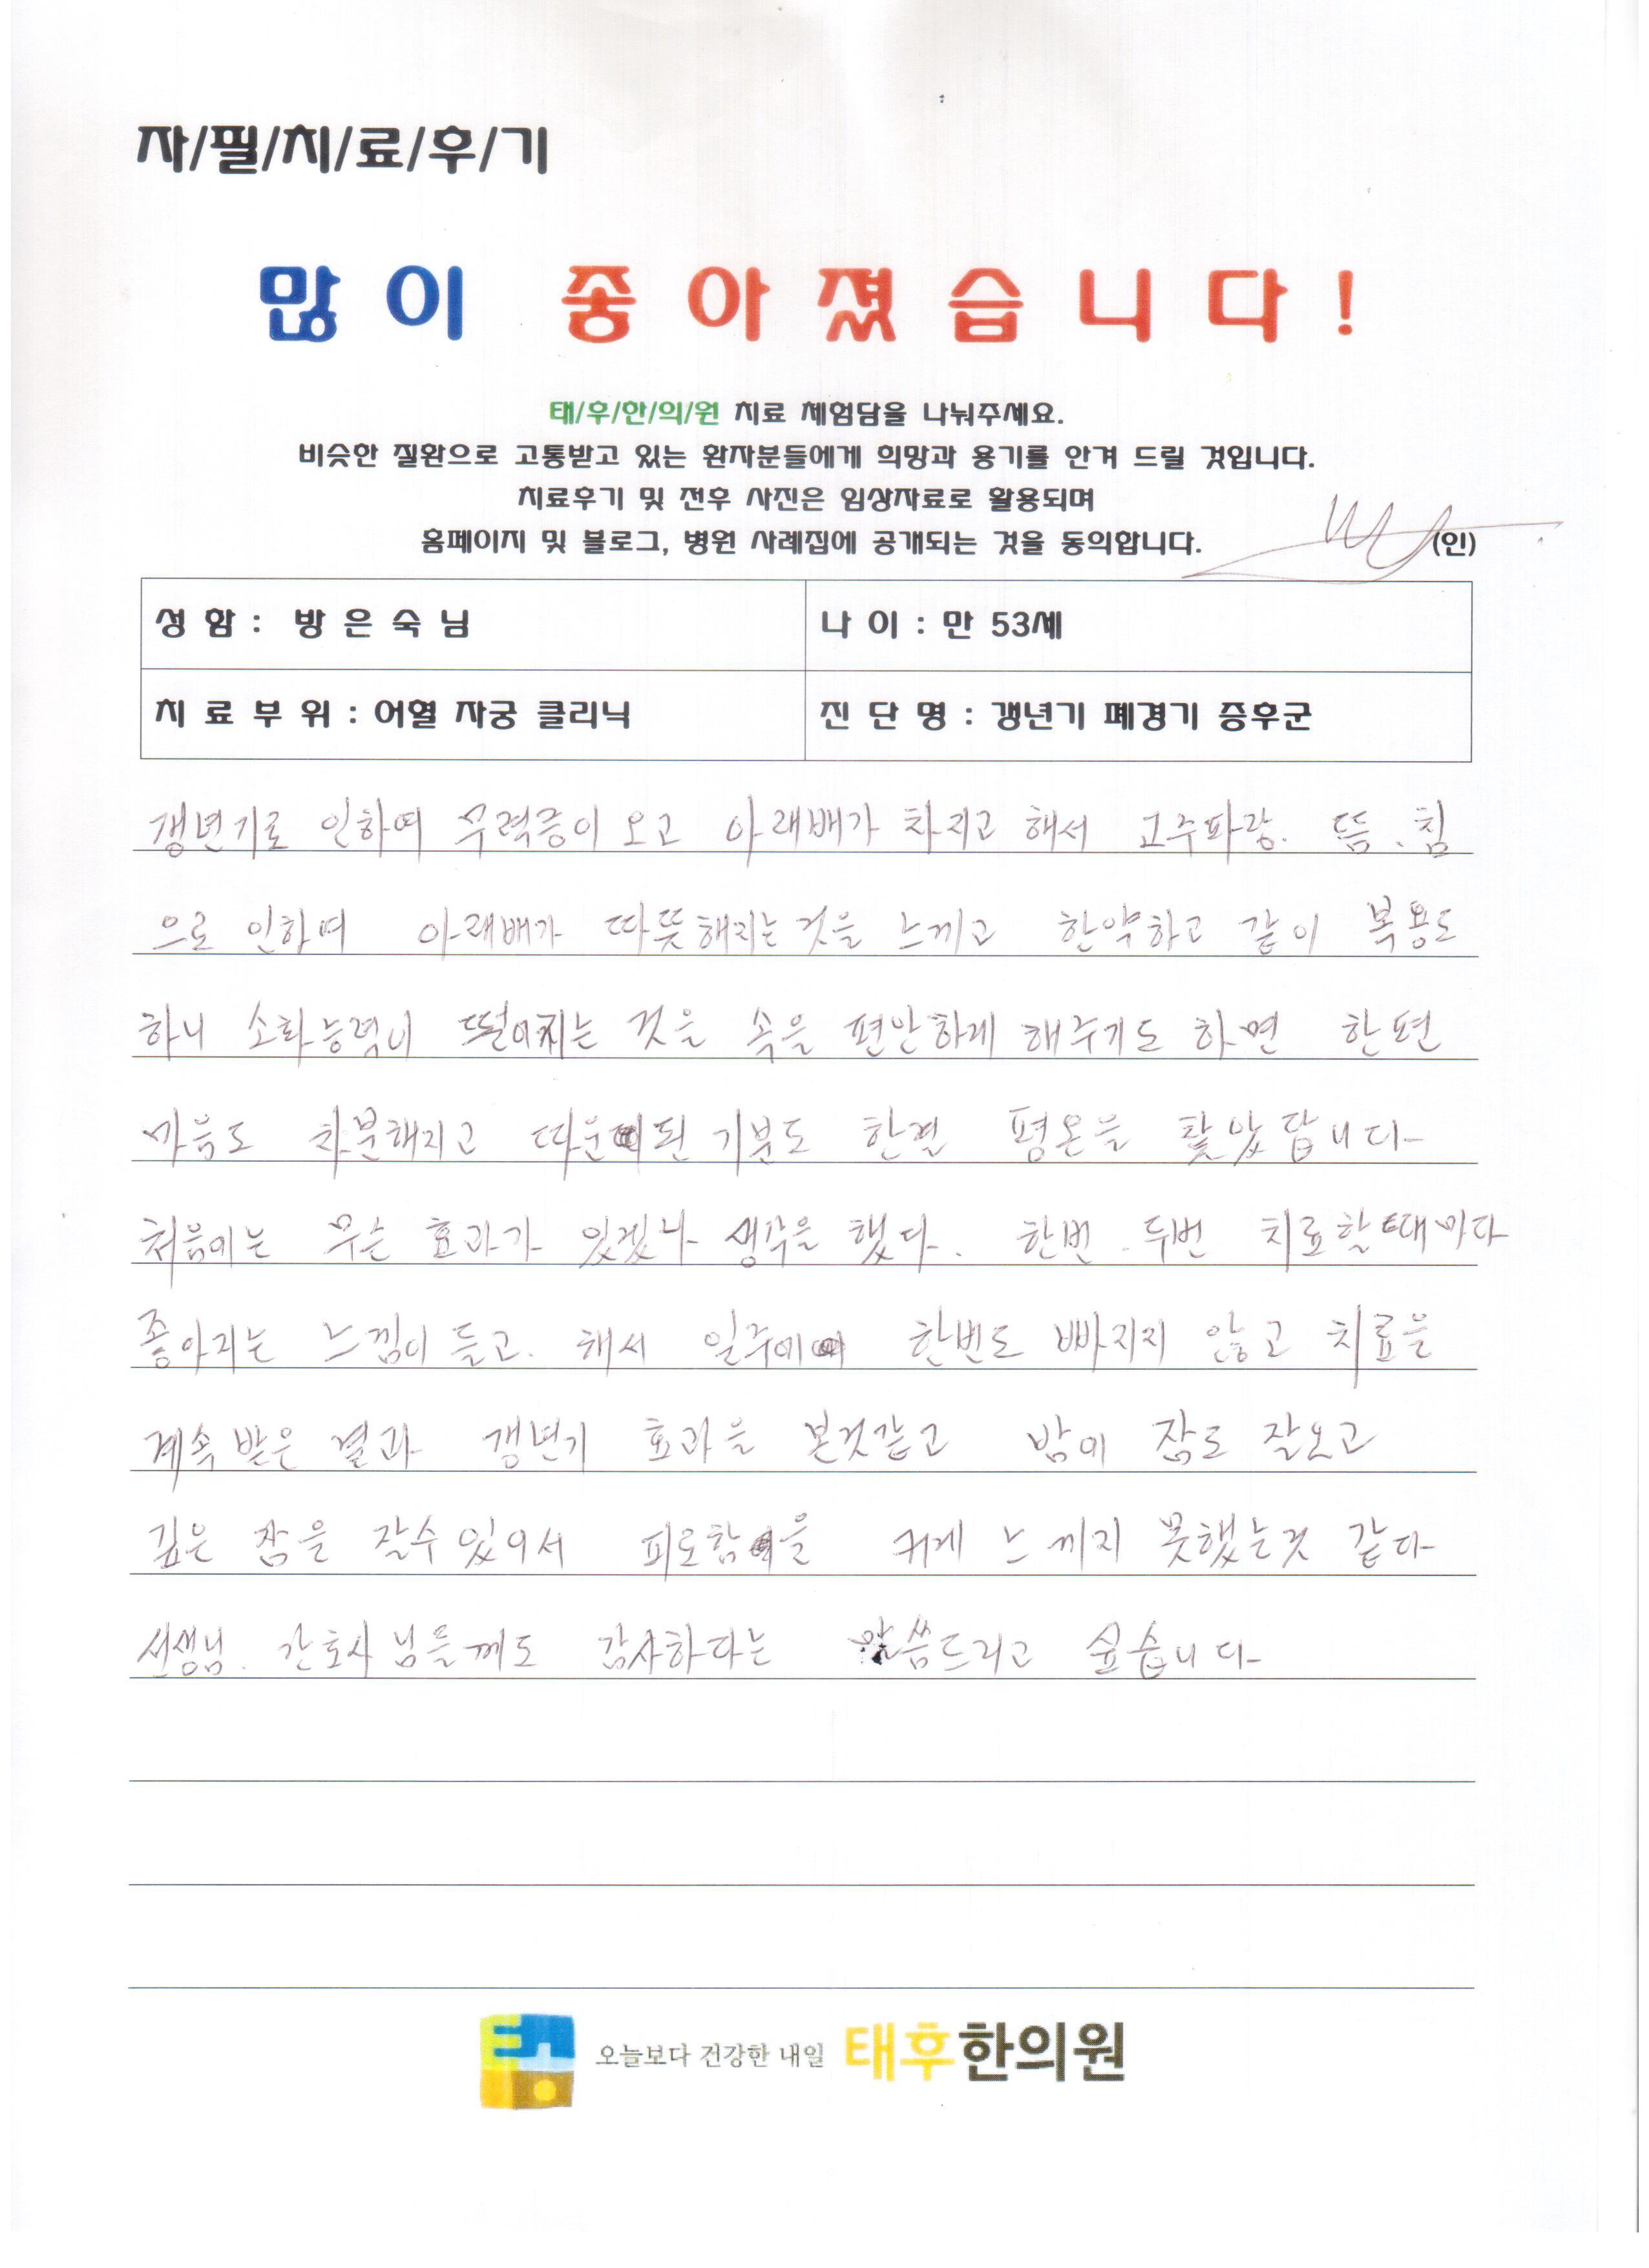 자/필/치/료/후/기
많이 좋아졌습니다!
태/후/한/의/원 치료 체험담을 나눠주세요.
비슷한 질환으로 고통받고 있는 환자분들에게 희망과 용기를 안겨 드릴 것입니다.
치료후기 및 전후 사진은 임상자료로 활용되며
홈페이지 및 블로그, 병원 사례집에 공개되는 것을 동의합니다. (인)
성 함 : 방 은 숙 님 나 이 : 만 53세
치 료 부 위 : 어혈 자궁 클리닉 진 단 명 : 갱년기 폐경기 증후군
갱년기로 인하여 무력증이 오고 아래배가 차지고 해서 고주파랑. 뜸.침
으로 인하여 아래배가 따뜻해지는 것을 느끼고 한약하고 같이 복용도
하니 소화능력이 떨어지는 것을 속을 편안하게 해주기도 하면 한편
마음도 차분해지고 따운된 기분도 한결 평온을 찾았답니다
처음에는 무슨 효과가 있겠나 생각을 했다. 한번. 두번 치료할때마다
좋아지는 느낌이 들고. 해서 일주에 한번도 빠지지 않고 치료을
계속 받은 결과 갱년기 효과을 본것같고 밤에 잠도 잘오고
깊은 잠을 잘수 있어서 피로함을 크게 느끼지 못했는것 같다
선생님. 간호사 님들께도 감사하다는 말씀드리고 싶습니다
오늘보다 건강한 내일 태후한의원